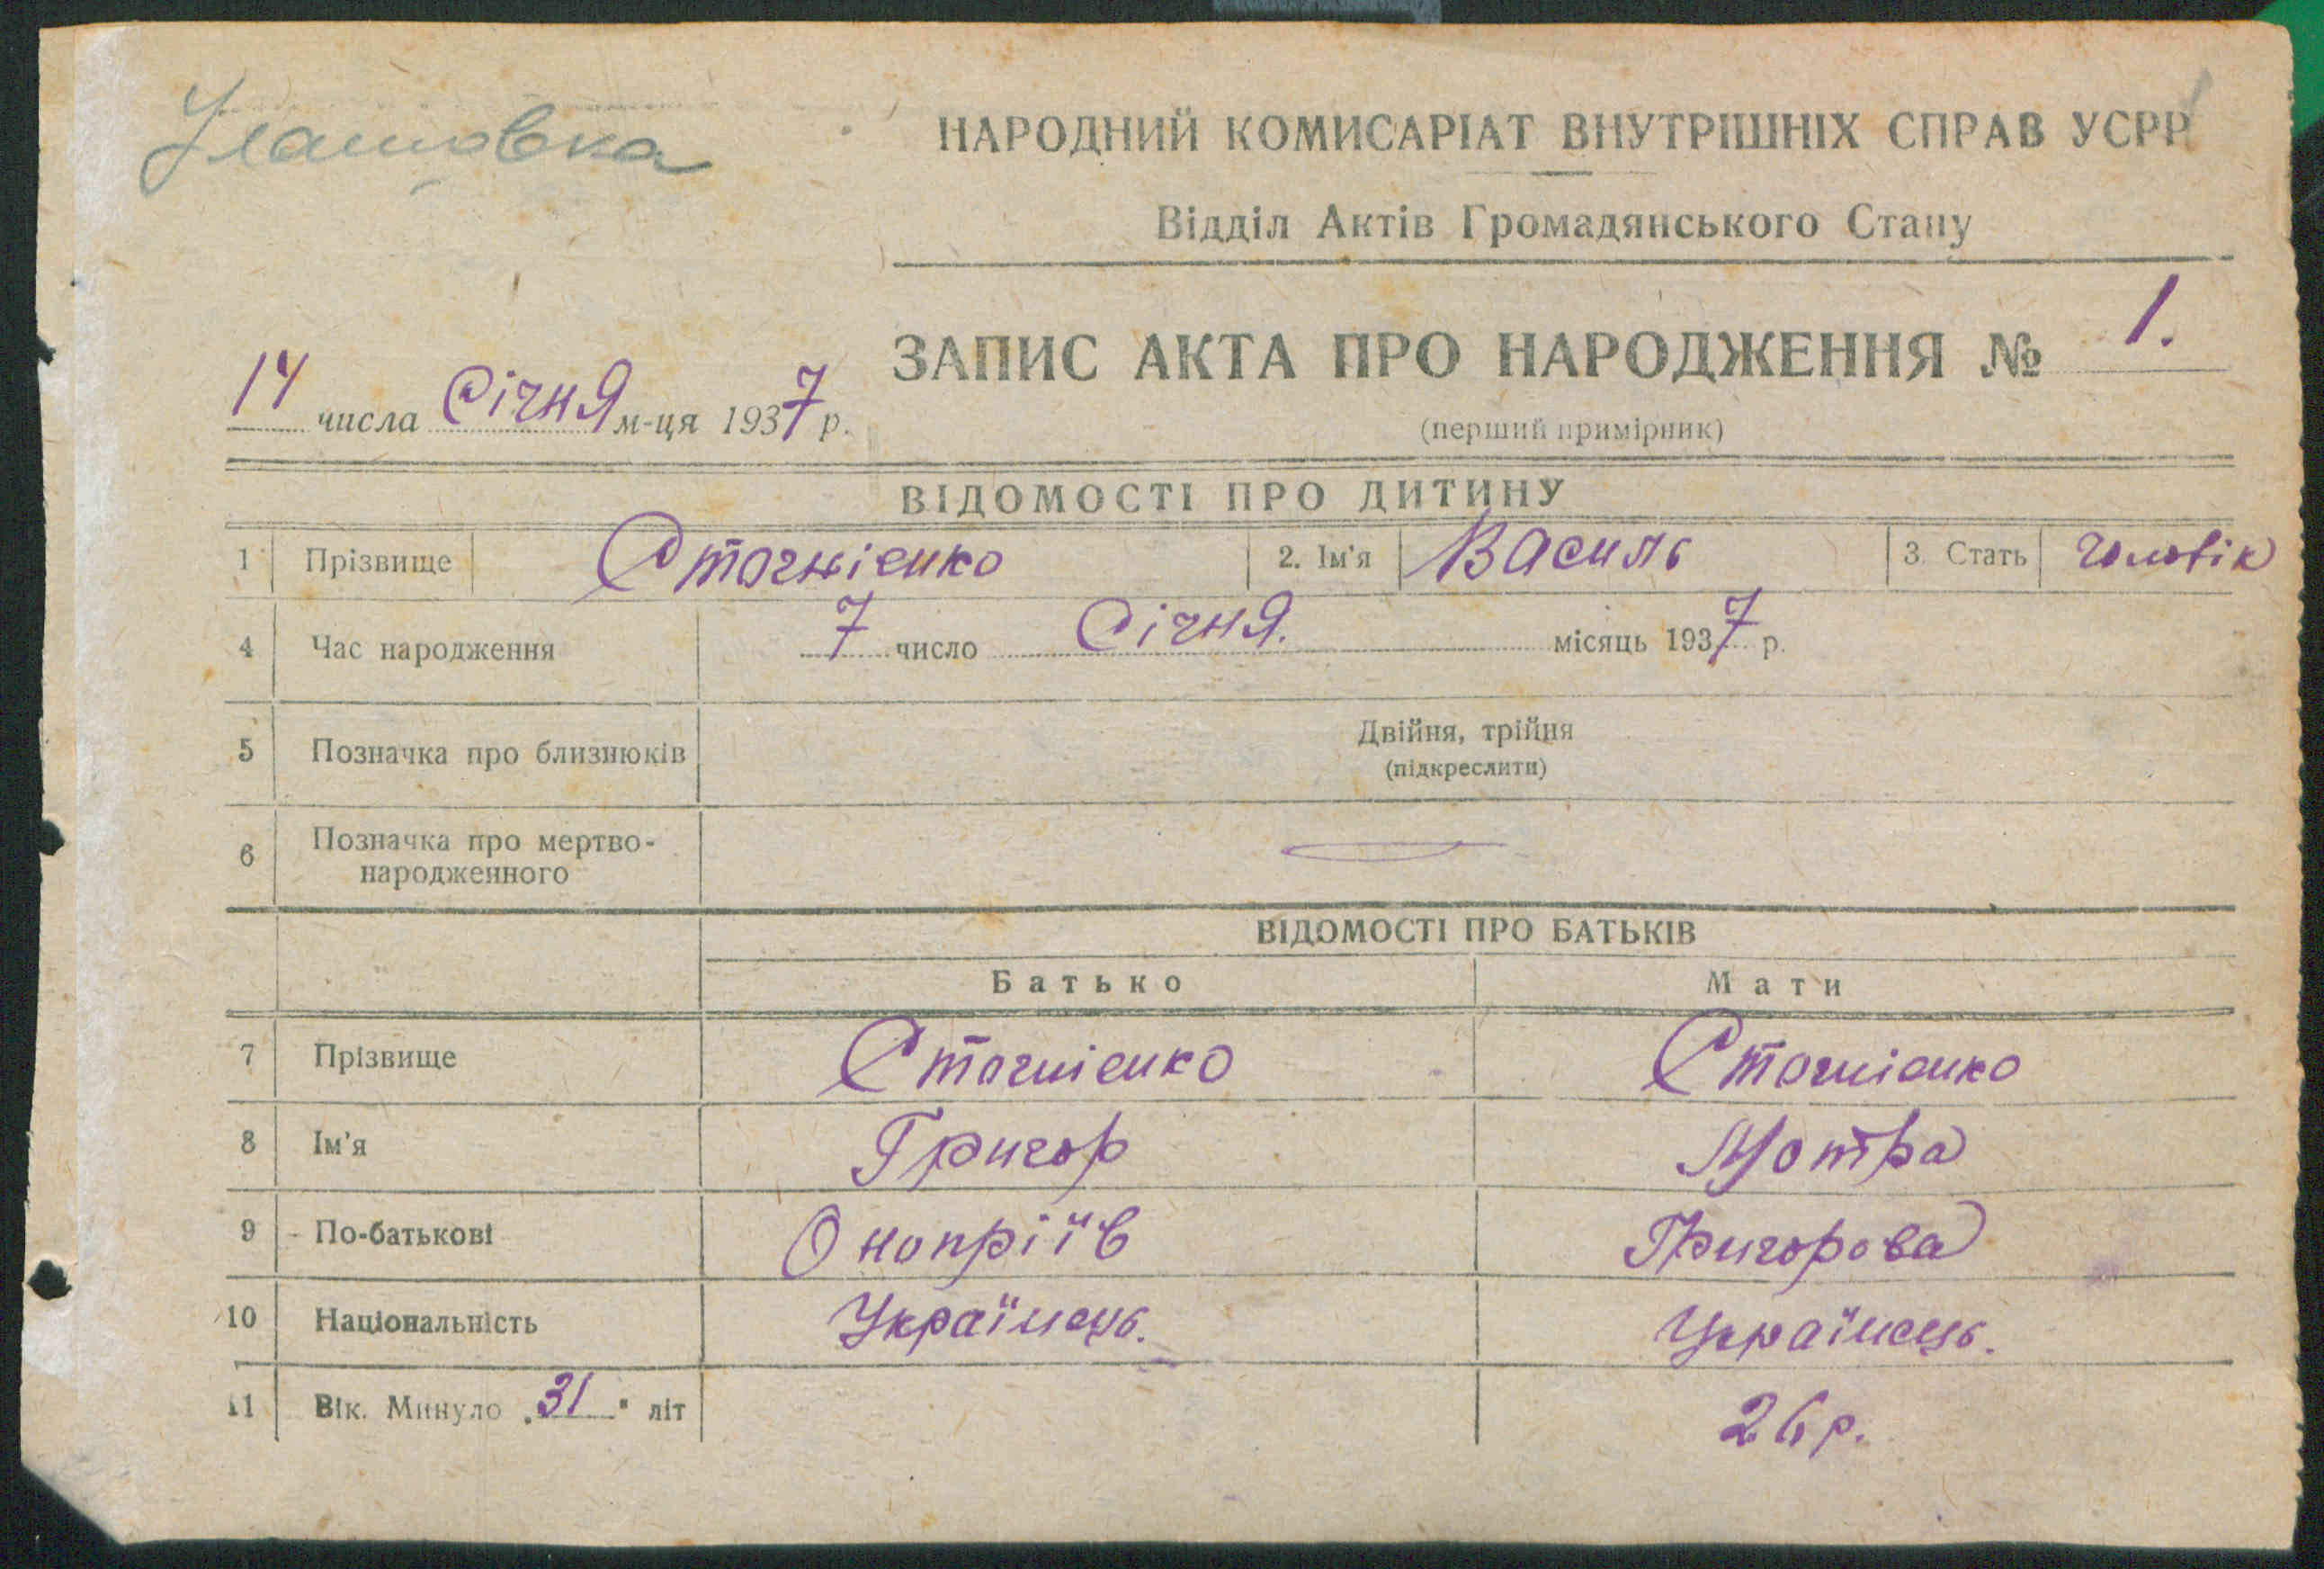 НАРОДНИЙ КОМИСАРІАТ ВНУТРІШНІХ СПРАВ УСРР
Відділ Актів Громадянського Стану
ЗАПИС АКТА ПРО НАРОДЖЕННЯ № 1.
14 числа Січня м-ця 1937 р.
(перший примірник)
ВІДОМОСТІ ПРО ДИТИНУ
1 Прізвище Стогнієнко 2. Ім'я Василь 3. Стать чоловік
4 Час народження 7 число Січня. місяць 1937 р.
Двійня, трійня
5 Позначка про близнюків
(підкреслити)
6 Позначка про мертво-
народженного
ВІДОМОСТІ ПРО БАТЬКІВ
Батько Мати
7 Прізвище Стогнієнко Стогнієнко
8 Ім'я Григор Мотра
9 По-батькові Онопріїв Григорова
10 Національність Українець. Українець.
11 Вік. Минуло „31" літ 26 р.